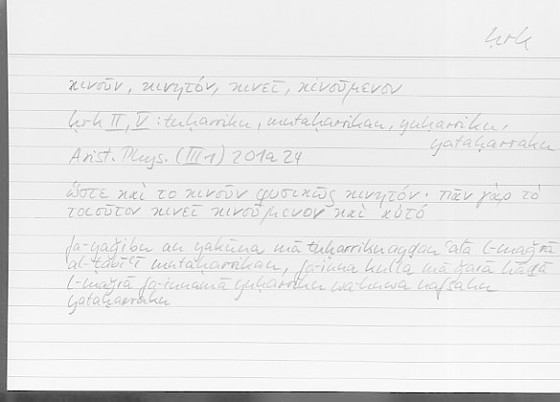 ḥrk
κινοῦν, κινητόν, κινεῖ, κινούμενον
ḥrk II, V : tuḥarriku, mutaḥarrikan, yuḥarriku,
yataḥarraku
Arist. Phys. (III 1) 201a 24
ὥστε καὶ τὸ κινοῦν φυσικῶς κινητόν· πᾶν γὰρ τὸ
τοιοῦτον κινεῖ κινούμενον καὶ αὐτό
fa-yaǧibu an yakūna mā tuḥarriku ʿalā l-maǧrā
al-ṭabīʿī mutaḥarrikan, fa-inna kulla mā ǧarā hāḏā
l-maǧrā fa-innamā yuḥarriku wa-huwa nafsahu
yataḥarraku